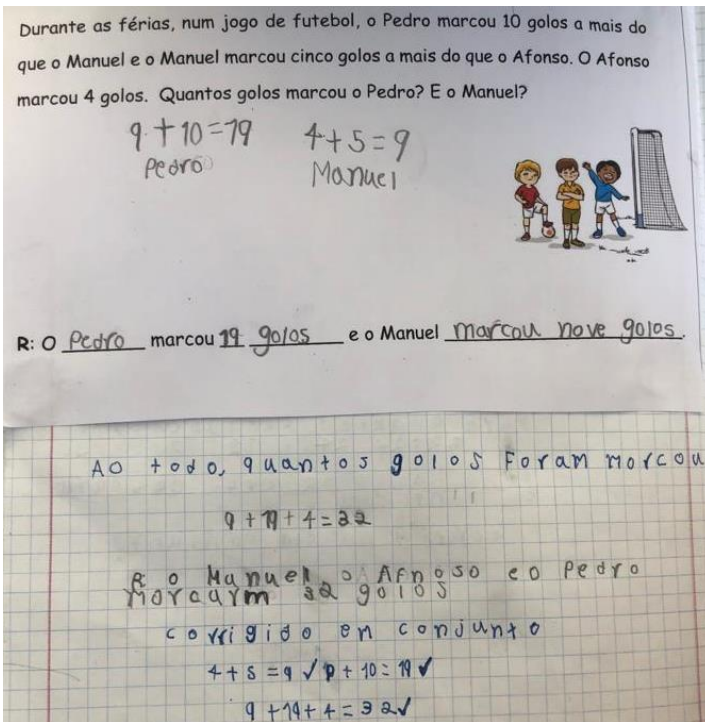 Durante as férias, num jogo de futebol, o Pedro marcou 10 golos a mais do
que o Manuel e o Manuel marcou cinco golos a mais do que o Afonso. O Afonso
marcou 4 golos. Quantos golos marcou o Pedro? E o Manuel?
9+10=19 4+5=9
Pedro Manuel
R: O Pedro marcou 19 golos e o Manuel marcou nove golos.
Ao todo, quantos golos Foram morcou
9+19+4=32
R O Manuel o Afnoso e o Pedro
morcarm 32 golos
corrigido en conjunto
4+5=9 ✓ 9+10=19 ✓
9+19+4=32 ✓